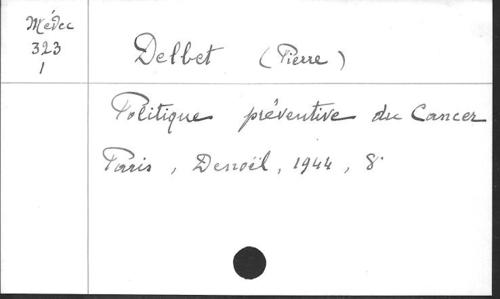 Médec
323
1
Delbet (Pierre)
Politique préventive du Cancer
Paris, Denoël, 1944, 8°